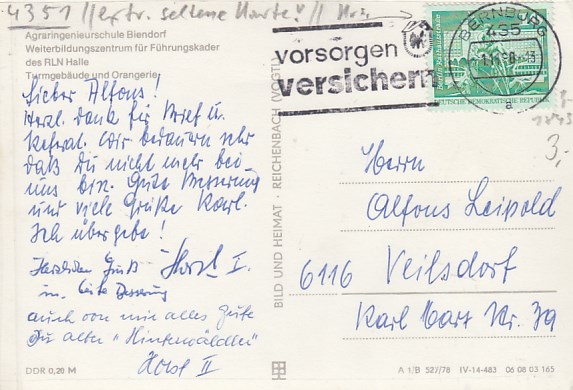 4351 // extr. seltene Karte! //
Agraringenieurschule Biendorf
Weiterbildungszentrum für Führungskader
des RLN Halle
Turmgebäude und Orangerie
vorsorgen
versichern
BERNBURG
435
a
DEUTSCHE DEMOKRATISCHE REPUBLIK
3,-
Lieber Alfons!
Herzl. Dank für Brief u.
Referat. Wir bedauern sehr
daß Du nicht mehr bei
uns bis. Gute Besserung
und viele Grüße Karl.
Ich übergebe!
Herzlichen Gruß Horst I.
u. Gute Besserung
auch von mir alles Gute
Du alter "Hinterwäldler"
Horst II
DDR 0,20 M
BILD UND HEIMAT · REICHENBACH (VOGTL)
Herrn
Alfons Leipold
6116 Veilsdorf
Karl Marx Str. 39
A 1/B 527/78 IV-14-483 06 08 03 165